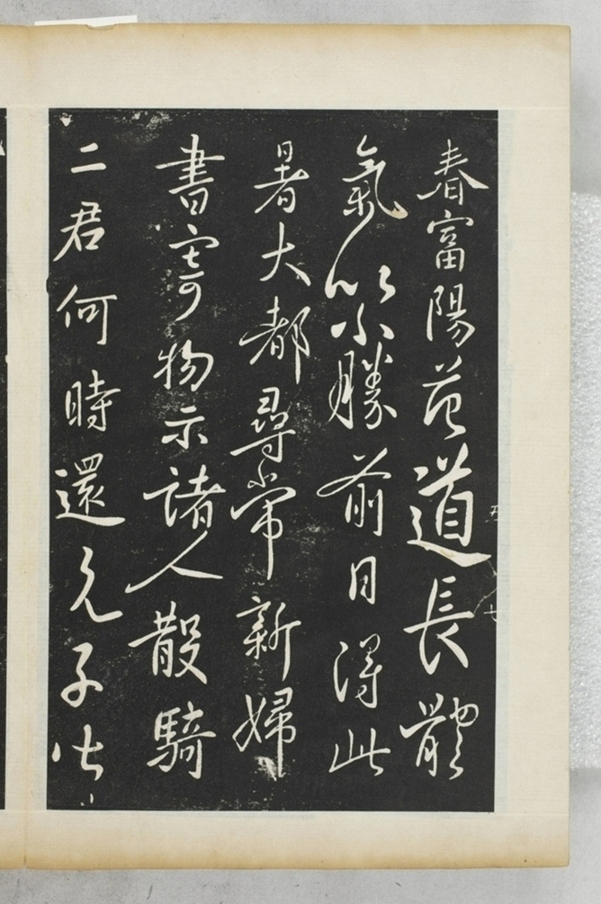 春富陽道長體
氣以小勝前日得此
暑大都尋常新婦
書寄物示諸人散騎
二君何時還兄子比